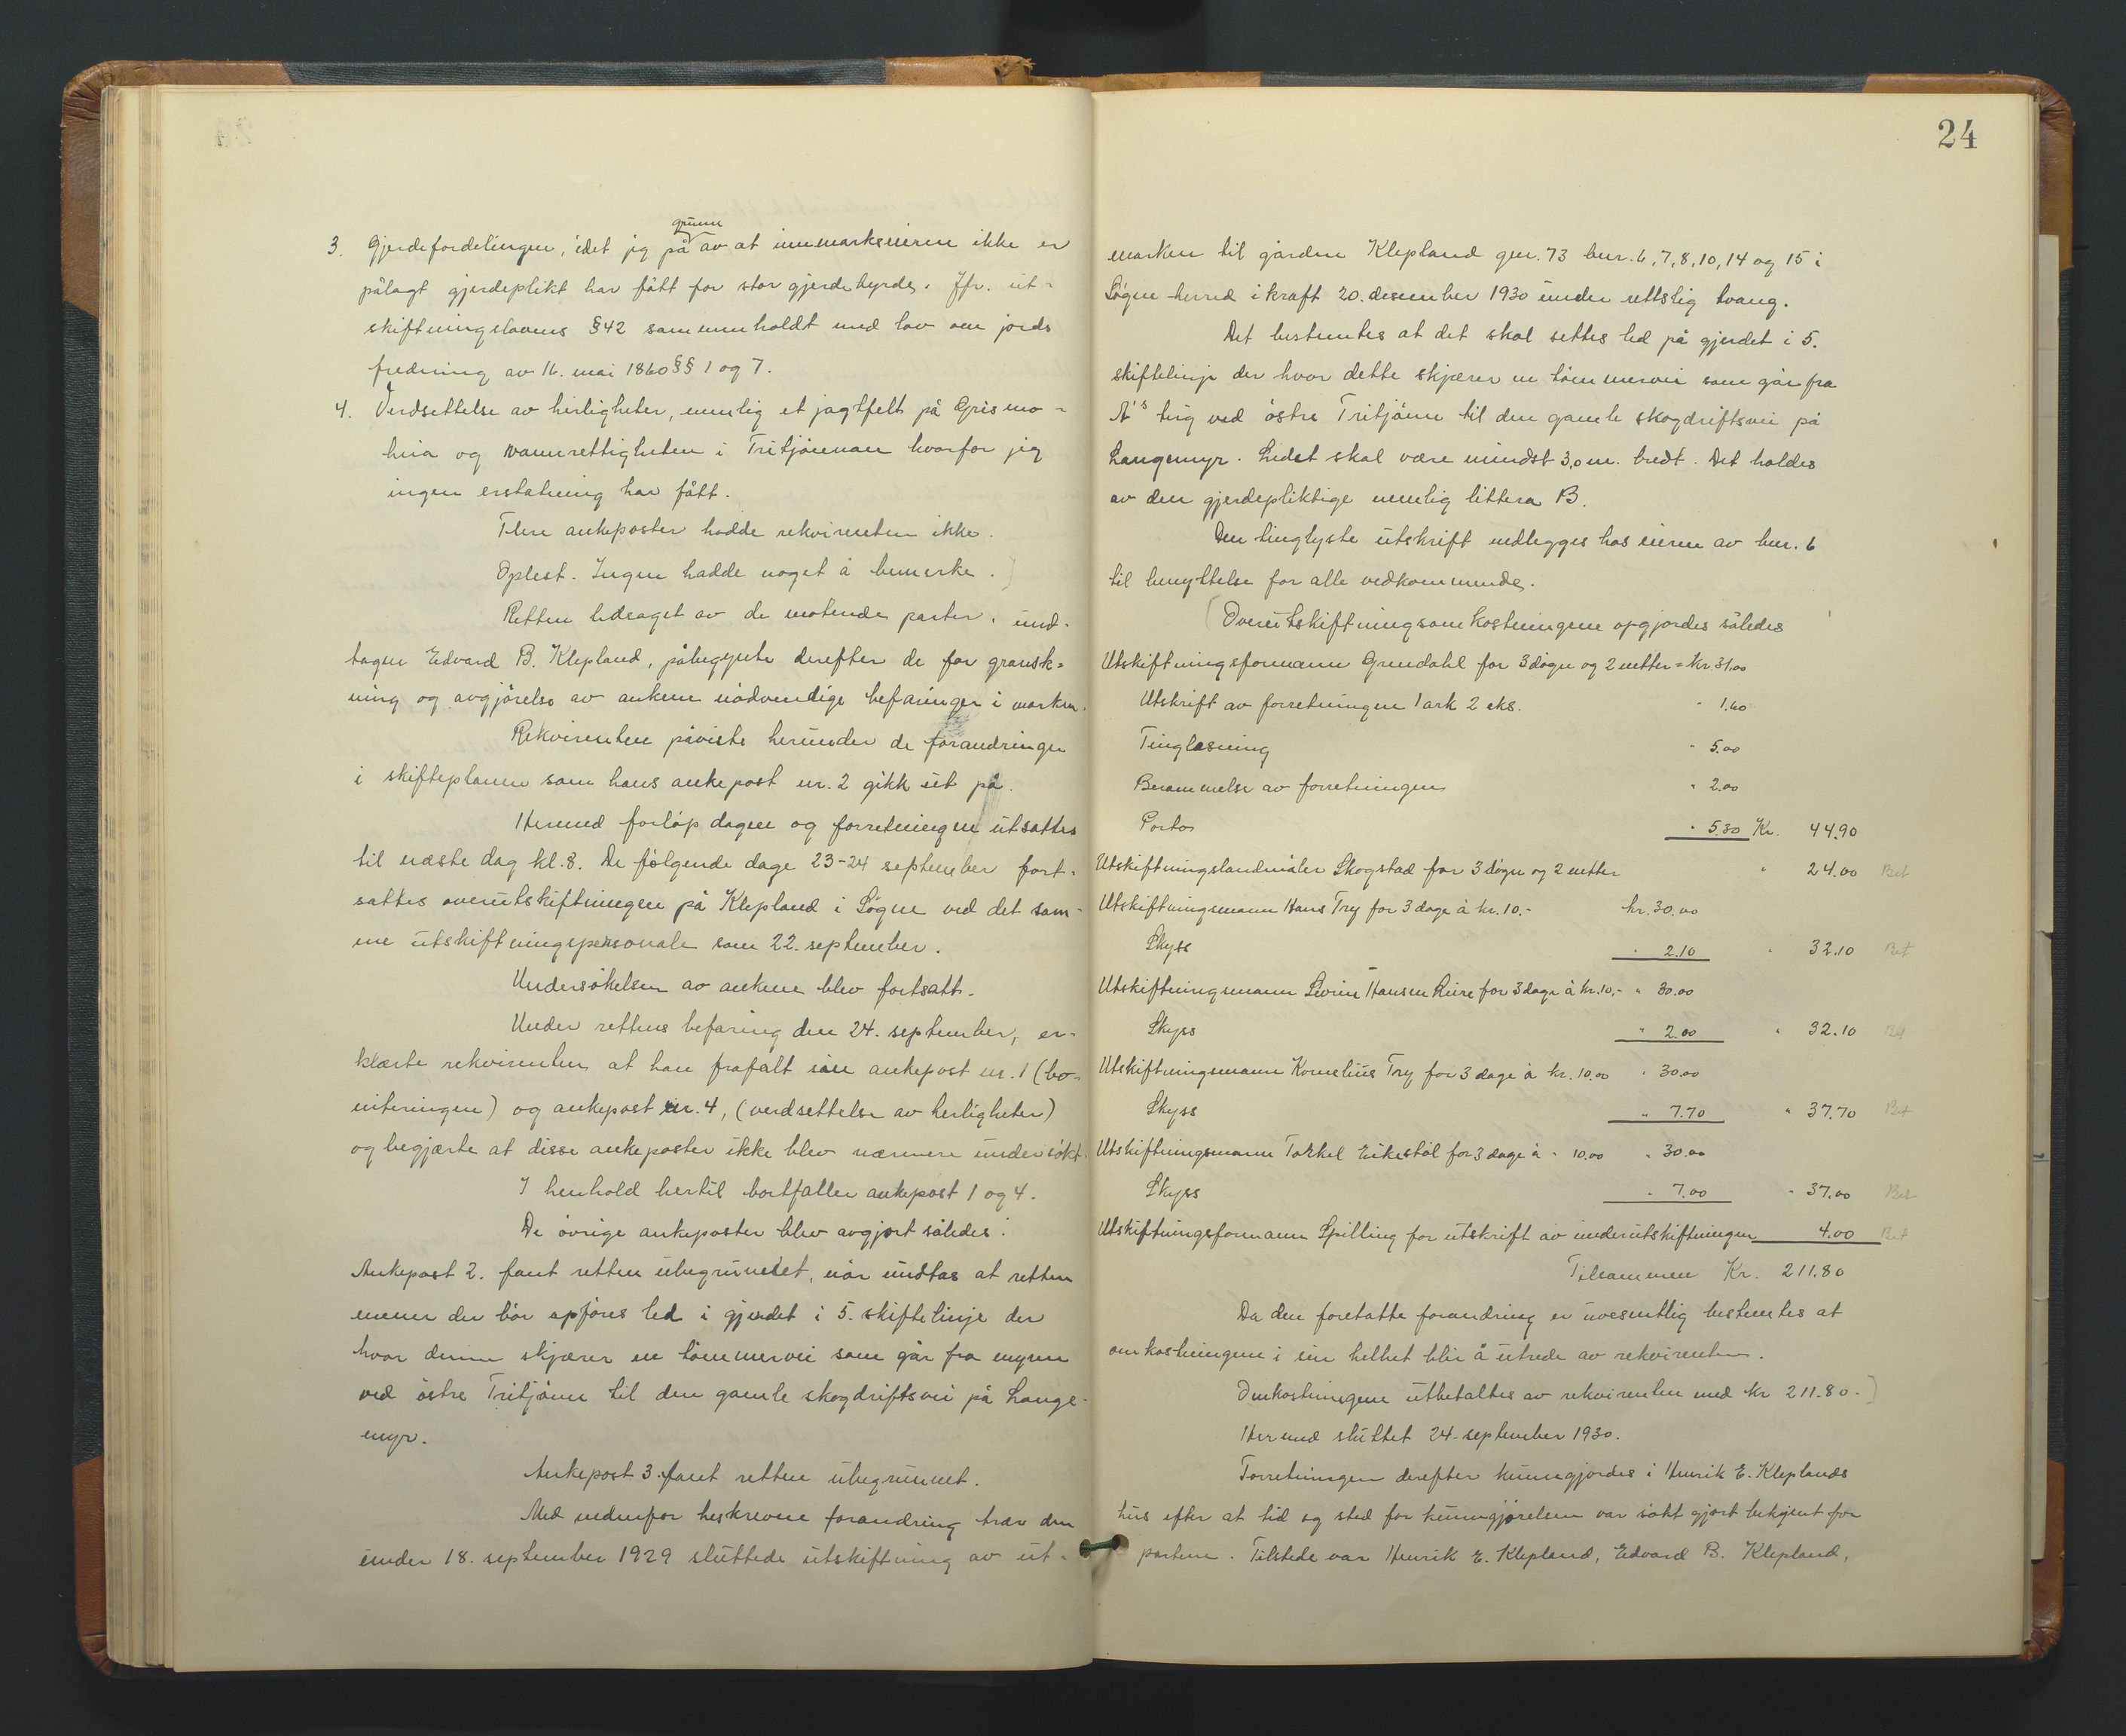 3. Gjerdefordelingen, idet jeg på grunn av at innmarkseieren ikke er
pålagt gjerdeplikt har fått for stor gjerdebyrde. Jfr. ut-
skiftningslovens § 42 sammenholdt med lov om jords
fredning av 16. mai 1860 §§ 1 og 7.
4. Verdsettelse av herligheter, nemlig et jagtfelt på Grismo-
heia og vannrettigheten i Tritjönnan hvorfor jeg
ingen erstatning har fått.
Flere ankeposter hadde rekvirenten ikke.
Oplest. Ingen hadde noget å bemerke.]
Retten ledsaget av de møtende parter, und-
tagen Edvard B. Klepland, påbegynte derefter de for gransk-
ning og avgjörelse av ankene nödvendige befaringer i marken.
Rekvirenten påviste herunder de forandringer
i skifteplanen som hans ankepost nr. 2 gikk ut på.
Hermed forløp dagen og forretningen utsattes
til næste dag kl. 8. De følgende dage 23-24 september fort-
sattes overutskiftningen på Klepland i Søgne ved det sam-
me utskiftningspersonale som 22. september.
Undersökelsen av ankene blev fortsatt.
Under rettens befaring den 24. september, er-
klærte rekvirenten at han frafalt sin ankepost nr. 1 (bo-
niteringen) og ankepost nr. 4, (verdsettelse av herligheter)
og begjærte at disse ankeposter ikke blev nærmere undersökt.
I henhold hertil bortfaller ankepost 1 og 4.
De övrige ankeposter blev avgjort således:
Ankepost 2. fant retten ubegrunnet, når undtas at retten
mener der bör opföres led i gjerdet i 5. skiftelinje der
hvor denne skjærer en tömmervei som går fra myren
ved östre Tritjönn til den gamle skogdriftsvei på Lange-
myr.
Ankepost 3. fant retten ubegrunnet.
Med nedenfor beskrevne forandring trær den
under 18. september 1929 sluttede utskiftning av ut-
24
marken til gården Klepland gnr. 73 bnr. 6, 7, 8, 10, 14 og 15 i
Søgne herred i kraft 20. desember 1930 under rettslig tvang.
Det bestemtes at det skal settes led på gjerdet i 5.
skiftelinje der hvor dette skjærer en tömmervei som går fra
A's teig ved östre Tritjönn til den gamle skogdriftsvei på
Langemyr. Ledet skal være mindst 3,0 m. bredt. Det holdes
av den gjerdepliktige nemlig littera B.
Den tinglyste utskrift nedlegges hos eieren av bnr. 6
til benyttelse for alle vedkommende.
[Overutskiftningsomkostningene opgjordes således
Utskiftningsformann Grendahl for 3 dögn og 2 netter = kr. 31.00
Utskrift av forretningen 1 ark 2 eks. " 1.60
Tinglesning " 5.00
Berammelse av forretningen " 2.00
Portos " 5.30 Kr. 44.90
Utskiftningslandmåler Skogstad for 3 dögn og 2 netter " 24.00 Bet
Utskiftningsmann Hans Try for 3 dage à kr. 10.- kr. 30.00
Skyss " 2.10 " 32.10 Bet
Utskiftningsmann Severin Hansen Leire for 3 dage à kr. 10,- " 30.00
Skyss " 2.00 " 32.10 Bet
Utskiftningsmann Kornelius Try for 3 dage à kr. 10.00 " 30.00
Skyss " 7.70 " 37.70 Bet
Utskiftningsmann Torkel Eikestöl for 3 dage à " 10.00 " 30.00
Skyss " 7.00 " 37.00 Bet
Utskiftningsformann Spilling for utskrift av underutskiftningen 4.00 Bet
Tilsammen Kr. 211.80
Da den foretatte forandring er uvesentlig bestemtes at
omkostningene i sin helhet blir å utrede av rekvirenten.
Omkostningene utbetaltes av rekvirenten med kr 211.80.]
Hermed sluttet 24. september 1930.
Forretningen derefter kunngjordes i Henrik E. Kleplands
hus efter at tid og sted for kunngjørelsen var søkt gjort bekjent for
partene. Tilstede var Henrik E. Klepland, Edvard B. Klepland,